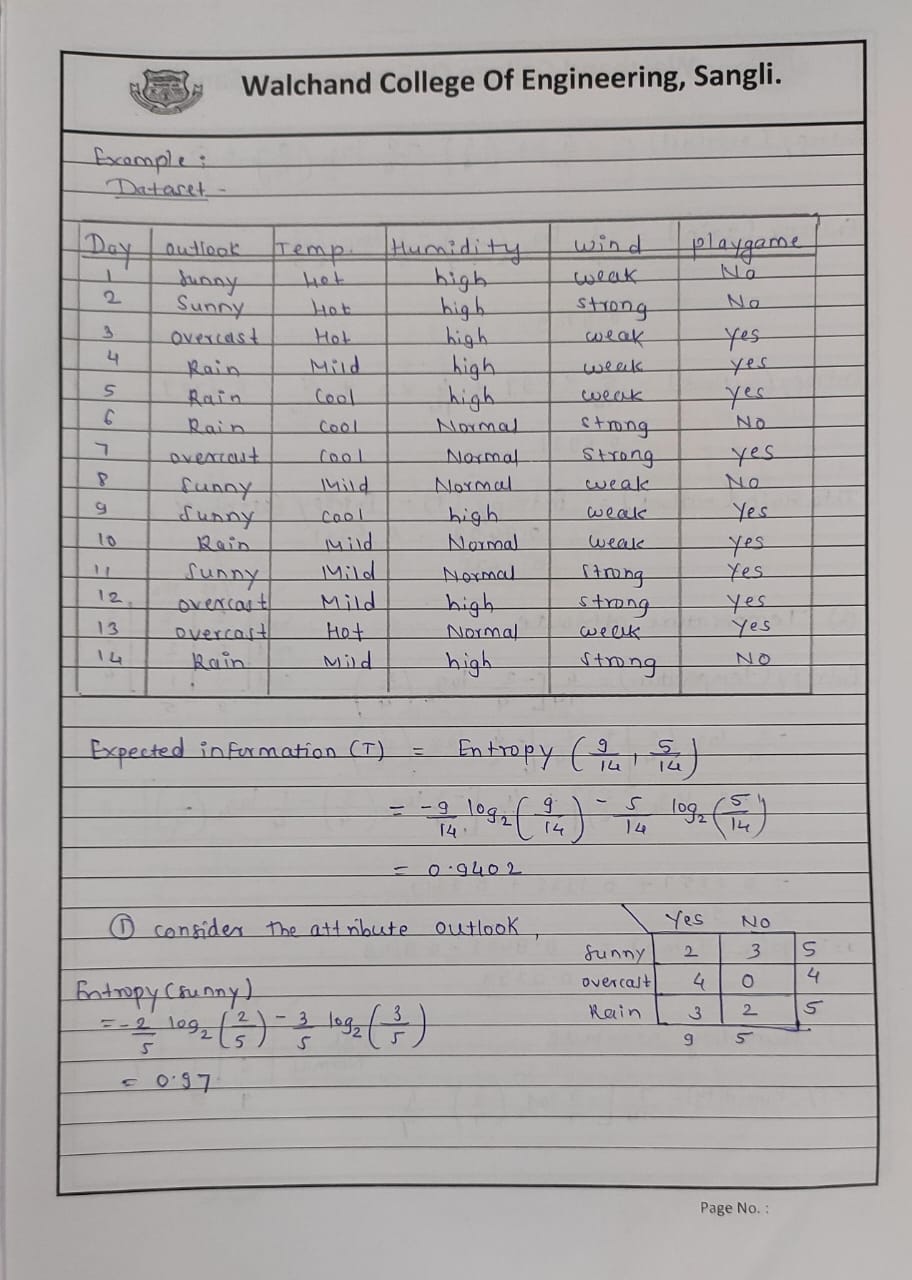 Walchand College Of Engineering, Sangli.
Example :
Dataset -
Day outlook Temp. Humidity wind playgame
1 Sunny Hot high weak No
2 Sunny Hot high strong No
3 overcast Hot high weak yes
4 Rain Mild high weak yes
5 Rain Cool high weak yes
6 Rain Cool Normal Strong No
7 overcast Cool Normal Strong yes
8 Sunny Mild Normal weak No
9 Sunny Cool high weak Yes
10 Rain Mild Normal weak yes
11 Sunny Mild Normal Strong Yes
12 overcast Mild high strong yes
13 overcast Hot Normal weak Yes
14 Rain Mild high strong NO
Expected information (T) = Entropy (9/14, 5/14)
= -9/14 log₂(9/14) - 5/14 log₂(5/14)
= 0.9402
① consider the attribute outlook,
Yes No
Sunny 2 3 5
overcast 4 0 4
Rain 3 2 5
9 5
Entropy (sunny)
= -2/5 log₂(2/5) - 3/5 log₂(3/5)
= 0.97
Page No. :